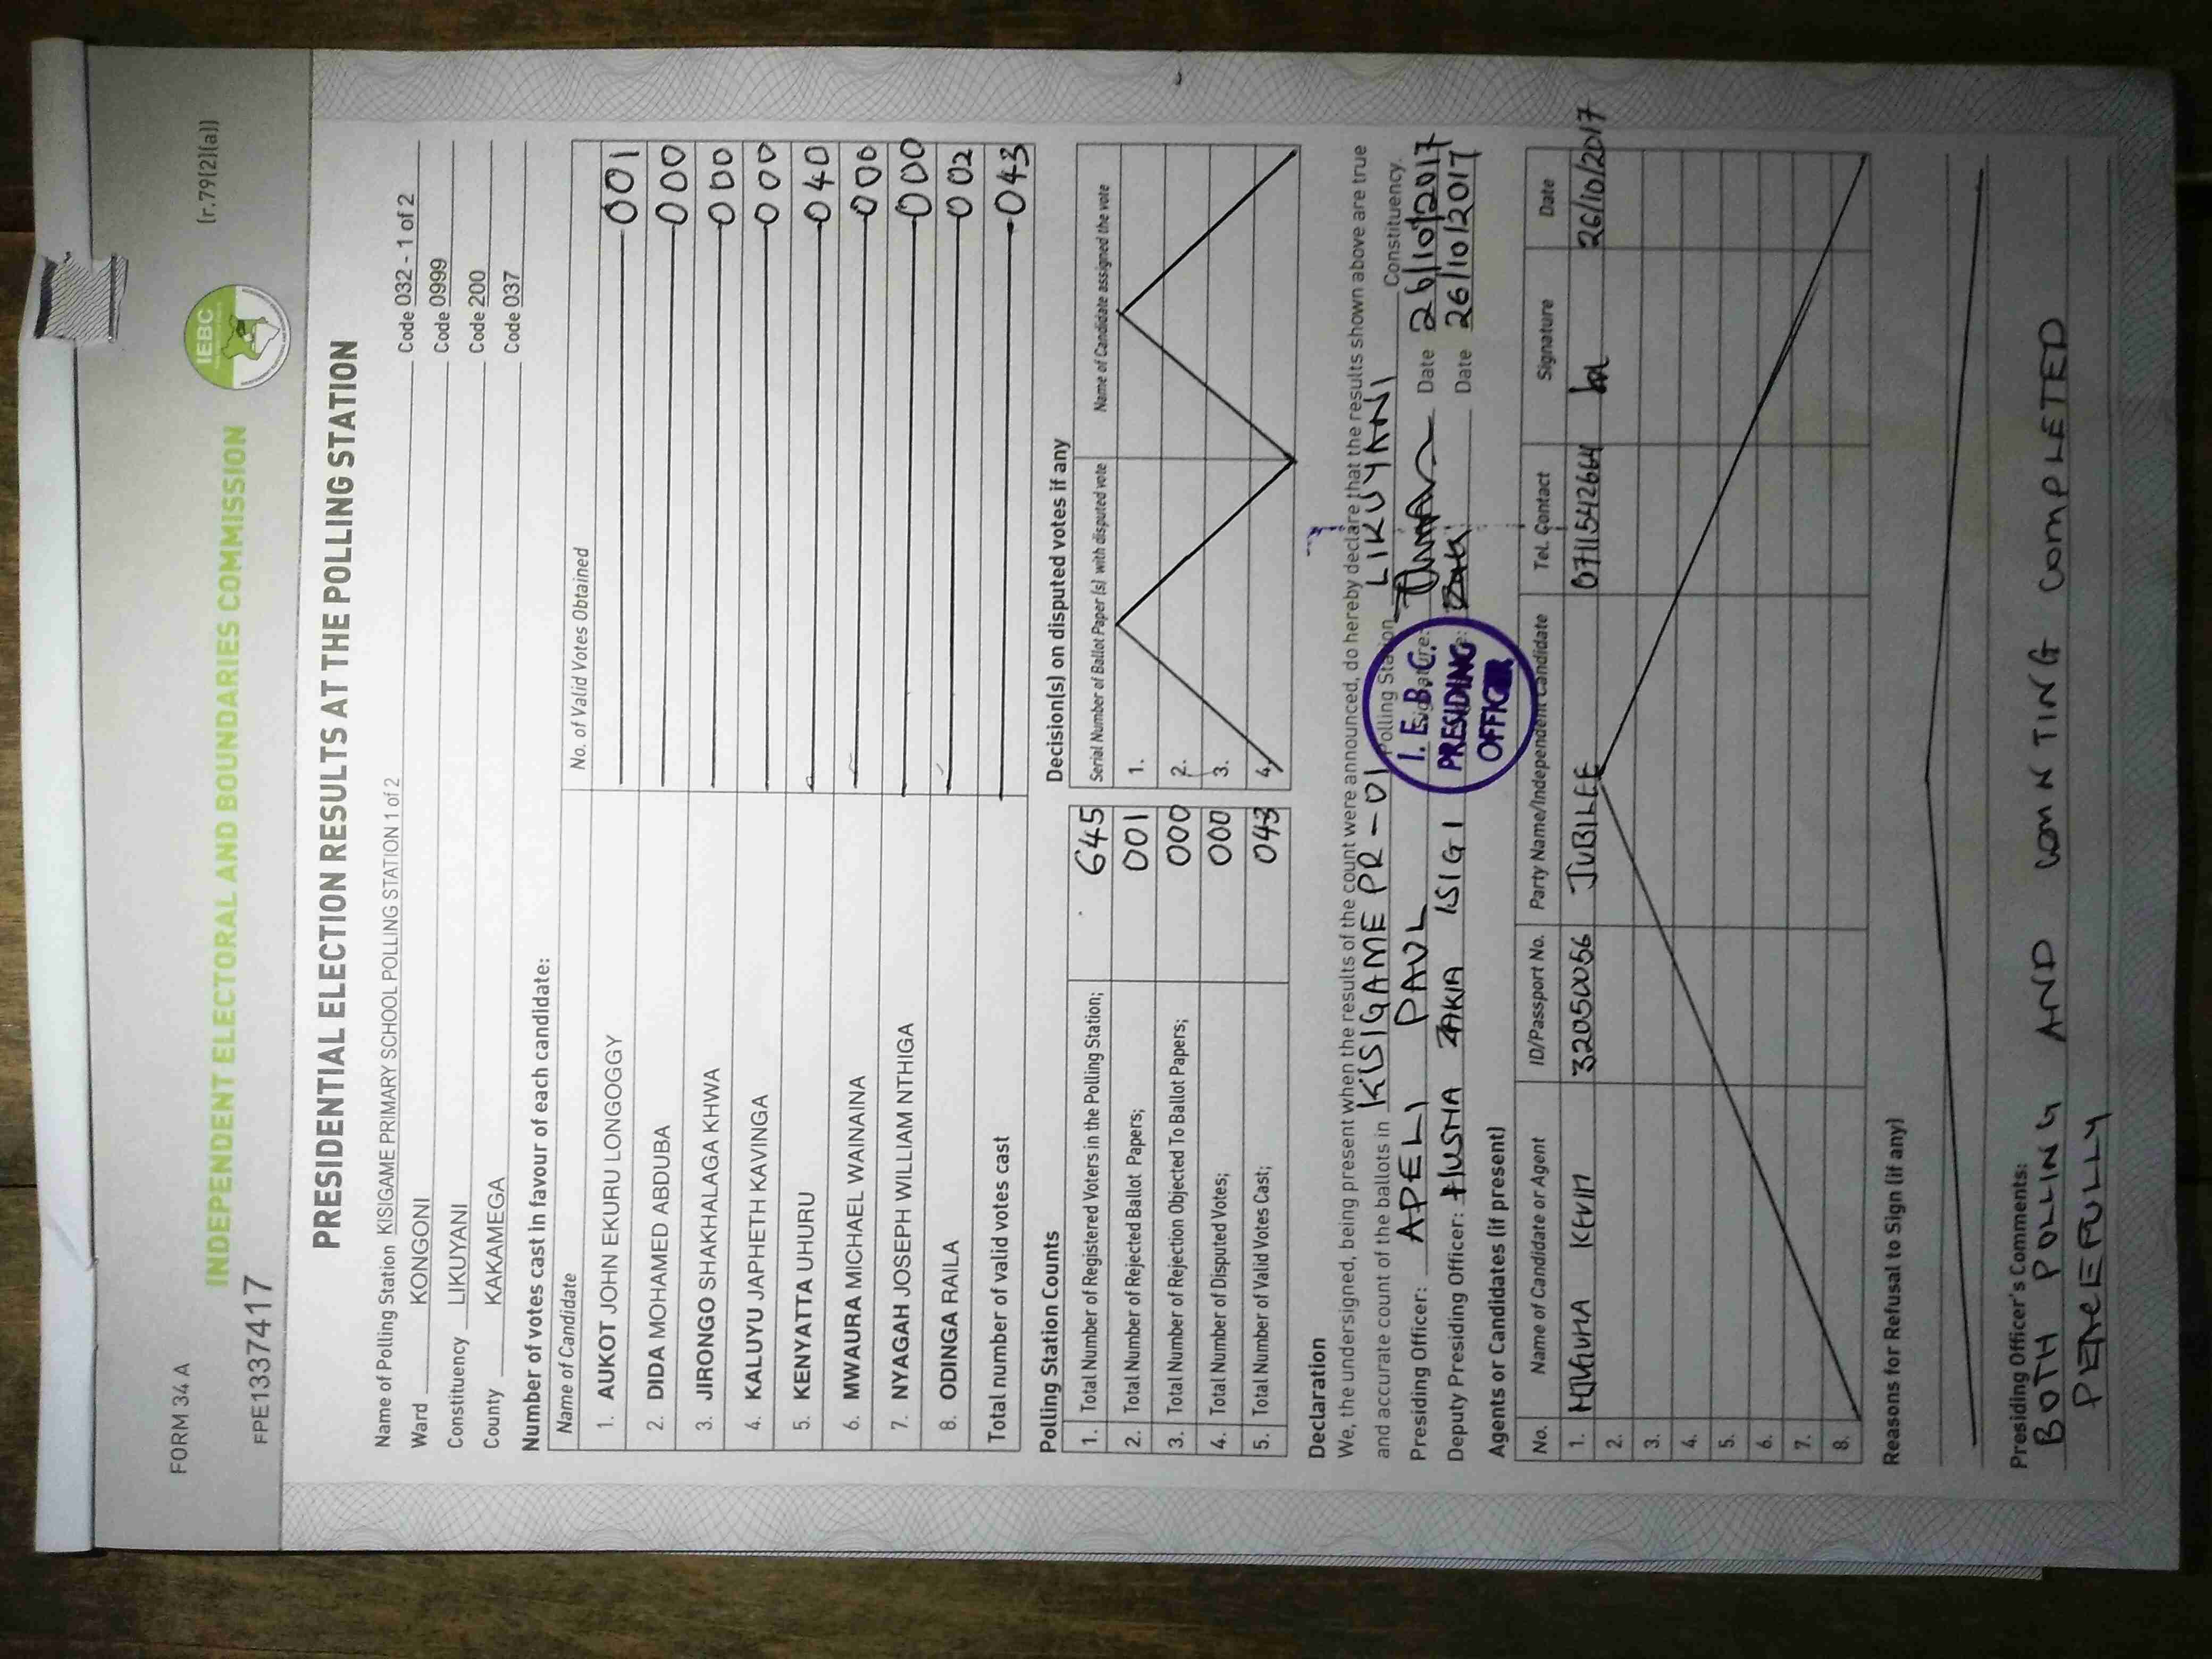 FORM 34 A
FPE1337417
INDEPENDENT ELECTORAL AND BOUNDARIES COMMISSION
IEBC
(r.79(2)(a))
PRESIDENTIAL ELECTION RESULTS AT THE POLLING STATION
Name of Polling Station KISIGAME PRIMARY SCHOOL POLLING STATION 1 of 2 Code 032 - 1 of 2
Ward KONGONI Code 0999
Constituency LIKUYANI Code 200
County KAKAMEGA Code 037
Number of votes cast in favour of each candidate:
Name of Candidate No. of Valid Votes Obtained
1. AUKOT JOHN EKURU LONGOGGY 001
2. DIDA MOHAMED ABDUBA 000
3. JIRONGO SHAKHALAGA KHWA 000
4. KALUYU JAPHETH KAVINGA 000
5. KENYATTA UHURU 040
6. MWAURA MICHAEL WAINAINA 000
7. NYAGAH JOSEPH WILLIAM NTHIGA 000
8. ODINGA RAILA 002
Total number of valid votes cast 043
Polling Station Counts
1. Total Number of Registered Voters in the Polling Station; 645
2. Total Number of Rejected Ballot Papers; 001
3. Total Number of Rejection Objected To Ballot Papers; 000
4. Total Number of Disputed Votes; 000
5. Total Number of Valid Votes Cast; 043
Decision(s) on disputed votes if any
Serial Number of Ballot Paper (s) with disputed vote Name of Candidate assigned the vote
1.
2.
3.
4.
Declaration
We, the undersigned, being present when the results of the count were announced, do hereby declare that the results shown above are true
and accurate count of the ballots in KISIGAME PR - 01 Polling Station LIKUYANI Constituency.
Presiding Officer: APELI PAUL Signature: Date 26/10/2017
Deputy Presiding Officer: HUSNA ZAKIA ISIGI Date 26/10/2017
I.E.B.C.
PRESIDING
OFFICER
Agents or Candidates (if present)
No. Name of Candidate or Agent ID/Passport No. Party Name/Independent Candidate Tel. Contact Signature Date
1. KEVIN 32050056 JUBILEE 0711542664 26/10/2017
2.
3.
4.
5.
6.
7.
8.
Reasons for Refusal to Sign (if any)
Presiding Officer's Comments:
BOTH POLLING AND COUNTING COMPLETED
PEACEFULLY